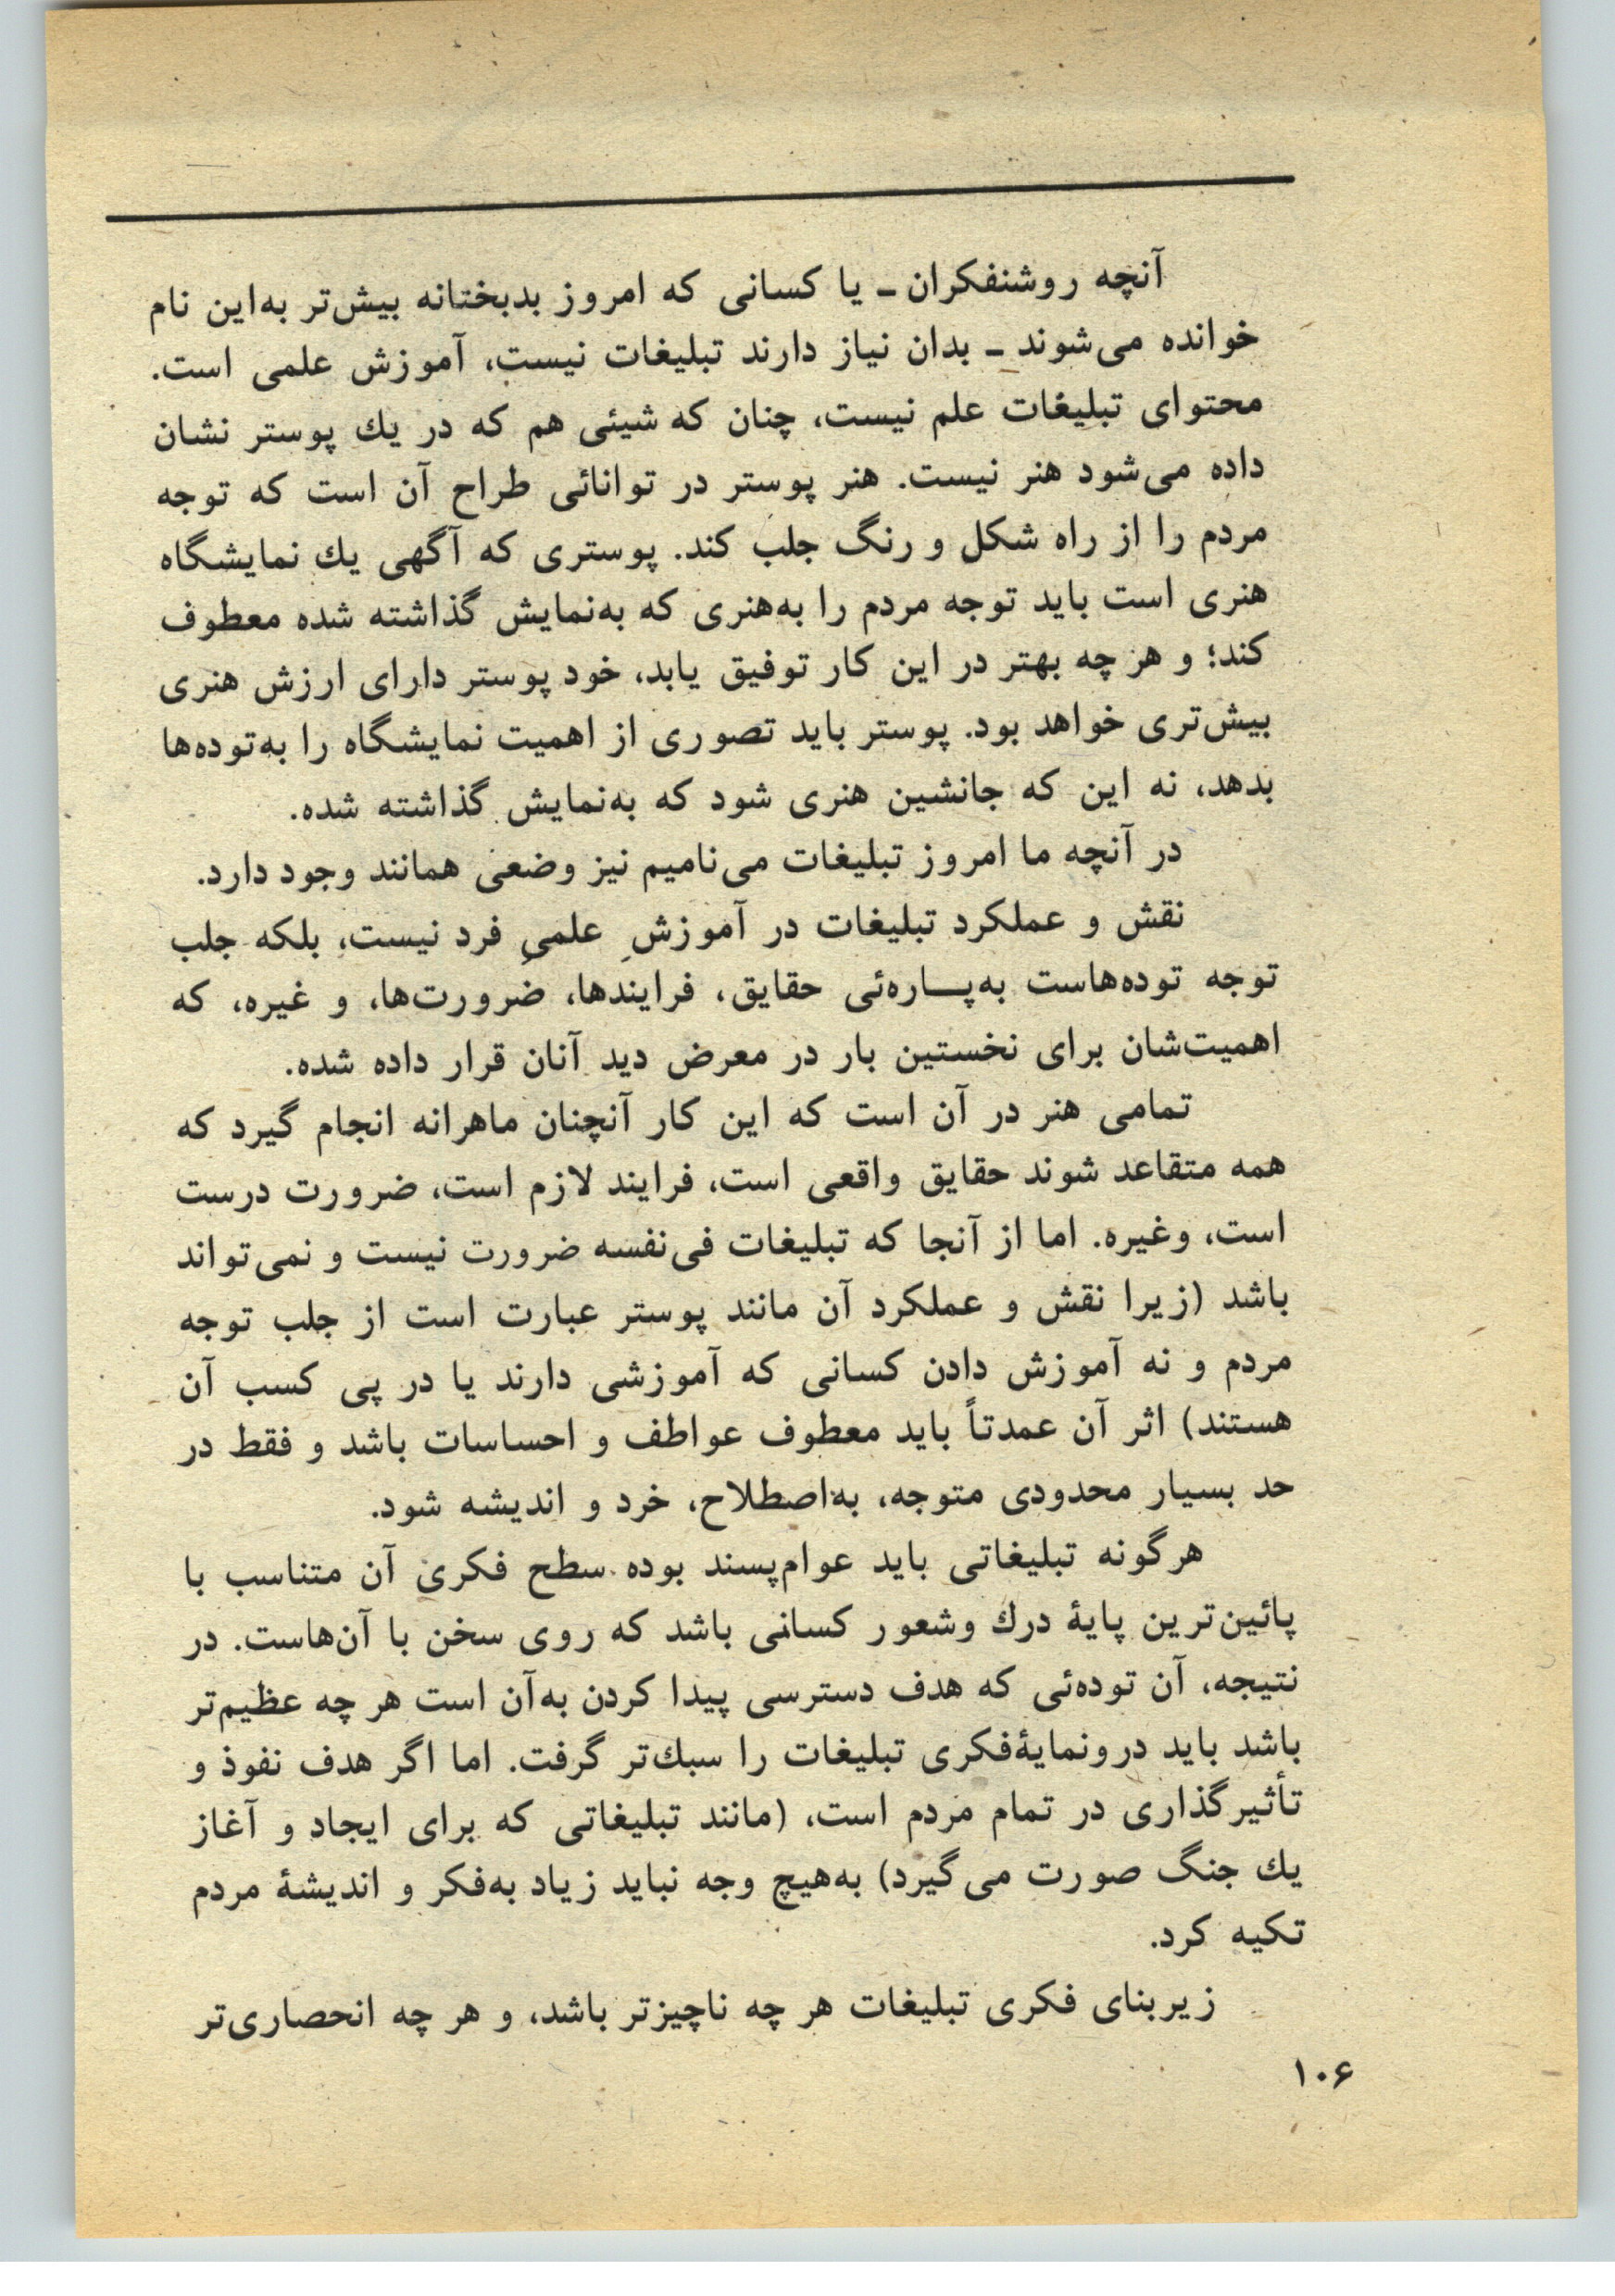 آنچه روشنفکران ـ یا کسانی که امروز بدبختانه بیش‌تر به‌این نام
خوانده می‌شوند ـ بدان نیاز دارند تبلیغات نیست، آموزش علمی است.
محتوای تبلیغات علم نیست، چنان که شیئی هم که در یك پوستر نشان
داده می‌شود هنر نیست. هنر پوستر در توانائی طراح آن است که توجه
مردم را از راه شکل و رنگ جلب کند. پوستری که آگهی یك نمایشگاه
هنری است باید توجه مردم را به‌هنری که به‌نمایش گذاشته شده معطوف
کند؛ و هر چه بهتر در این کار توفیق یابد، خود پوستر دارای ارزش هنری
بیش‌تری خواهد بود. پوستر باید تصوری از اهمیت نمایشگاه را به‌توده‌ها
بدهد، نه این که جانشین هنری شود که به‌نمایش گذاشته شده.
در آنچه ما امروز تبلیغات می‌نامیم نیز وضعی همانند وجود دارد.
نقش و عملکرد تبلیغات در آموزشِ علمیِ فرد نیست، بلکه جلب
توجه توده‌هاست به‌پـــاره‌ئی حقایق، فرایندها، ضرورت‌ها، و غیره، که
اهمیت‌شان برای نخستین بار در معرض دید آنان قرار داده شده.
تمامی هنر در آن است که این کار آنچنان ماهرانه انجام گیرد که
همه متقاعد شوند حقایق واقعی است، فرایند لازم است، ضرورت درست
است، وغیره. اما از آنجا که تبلیغات فی‌نفسه ضرورت نیست و نمی‌تواند
باشد (زیرا نقش و عملکرد آن مانند پوستر عبارت است از جلب توجه
مردم و نه آموزش دادن کسانی که آموزشی دارند یا در پی کسب آن
هستند) اثر آن عمدتاً باید معطوف عواطف و احساسات باشد و فقط در
حد بسیار محدودی متوجه، به‌اصطلاح، خرد و اندیشه شود.
هرگونه تبلیغاتی باید عوام‌پسند بوده سطح فکری آن متناسب با
پائین‌ترین پایهٔ درك وشعور کسانی باشد که روی سخن با آن‌هاست. در
نتیجه، آن توده‌ئی که هدف دسترسی پیدا کردن به‌آن است هر چه عظیم‌تر
باشد باید درونمایهٔ‌فکری تبلیغات را سبك‌تر گرفت. اما اگر هدف نفوذ و
تأثیرگذاری در تمام مردم است، (مانند تبلیغاتی که برای ایجاد و آغاز
یك جنگ صورت می‌گیرد) به‌هیچ وجه نباید زیاد به‌فکر و اندیشهٔ مردم
تکیه کرد.
زیربنای فکری تبلیغات هر چه ناچیزتر باشد، و هر چه انحصاری‌تر
۱۰۶